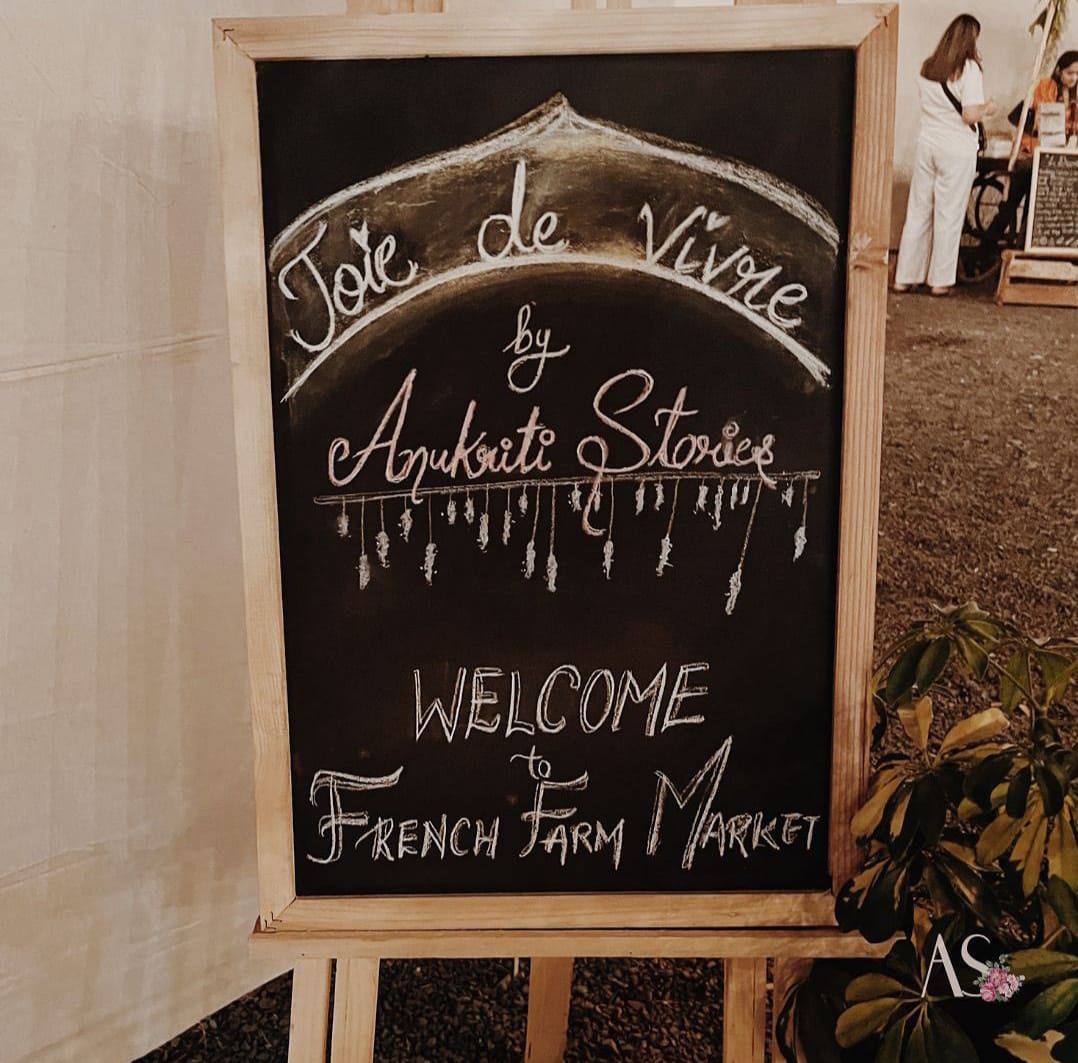 Joie de Vivre
by
Anukriti Stories
WELCOME
to
FRENCH FARM MARKET
AS